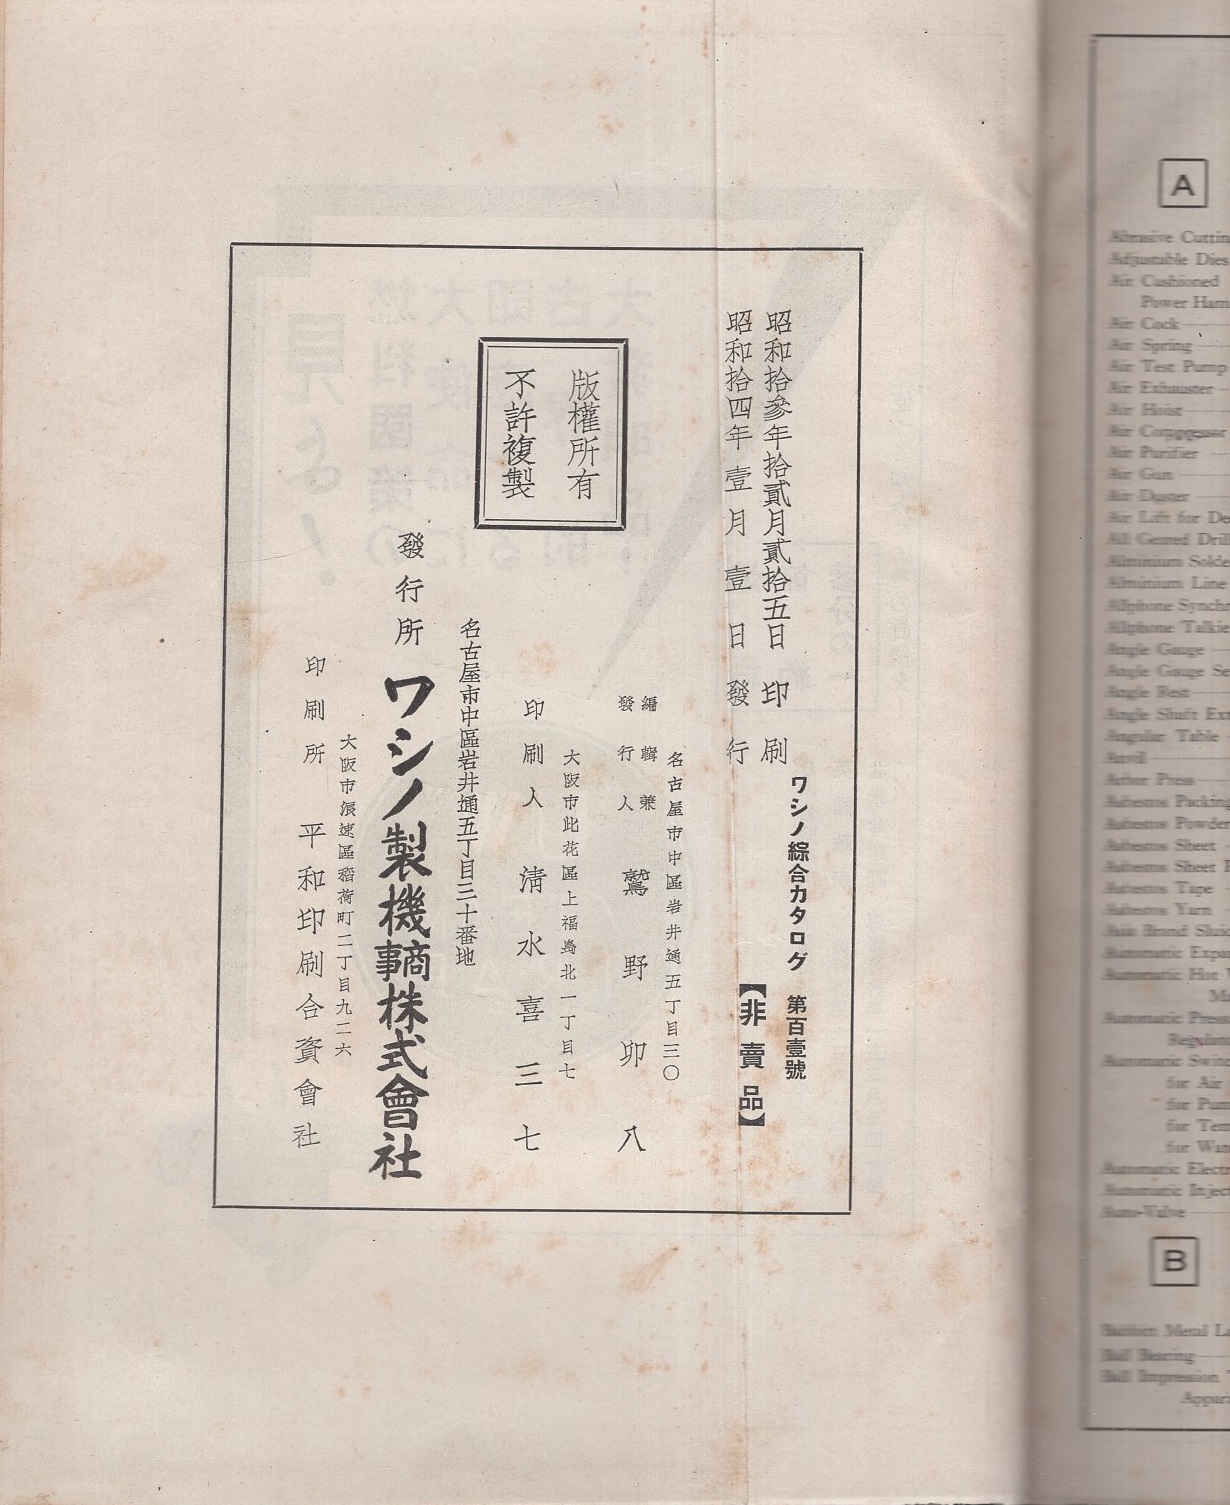 昭和拾參年拾貳月貳拾五日印刷
昭和拾四年壹月壹日發行
ワシノ綜合カタログ 第百壹號
【非賣品】
版權所有
不許複製
名古屋市中區岩井通五丁目三〇
編輯兼
發行人
鷲野卯八
大阪市此花區上福島北一丁目七
印刷人 淸水喜三七
名古屋市中區岩井通五丁目三十番地
發行所 ワシノ製機商事株式會社
大阪市浪速區稻荷町二丁目九二六
印刷所 平和印刷合資會社
A
Abrasive
Adjustable Dies
Air Cushioned
Power
Air Cock
Air Spring
Air Test Pump
Air Exhauster
Air Hoist
Air Compressor
Air Purifier
Air Gun
Air Duster
Air Lift for
All Geared
Aluminium
Aluminium Line
Allphone
Allphone
Angle Gauge
Angle Gauge
Angle Rest
Angle Shaft
Angular Table
Anvil
Arbor Press
Asbestos
Asbestos
Asbestos Sheet
Asbestos Sheet
Asbestos Tape
Asbestos Yarn
Asia Brand
Automatic
Automatic Hot
Automatic
Automatic
for Air
for
for
for
Automatic
Automatic
Auto-Valve
B
Babbitt Metal
Ball Bearing
Ball Impression